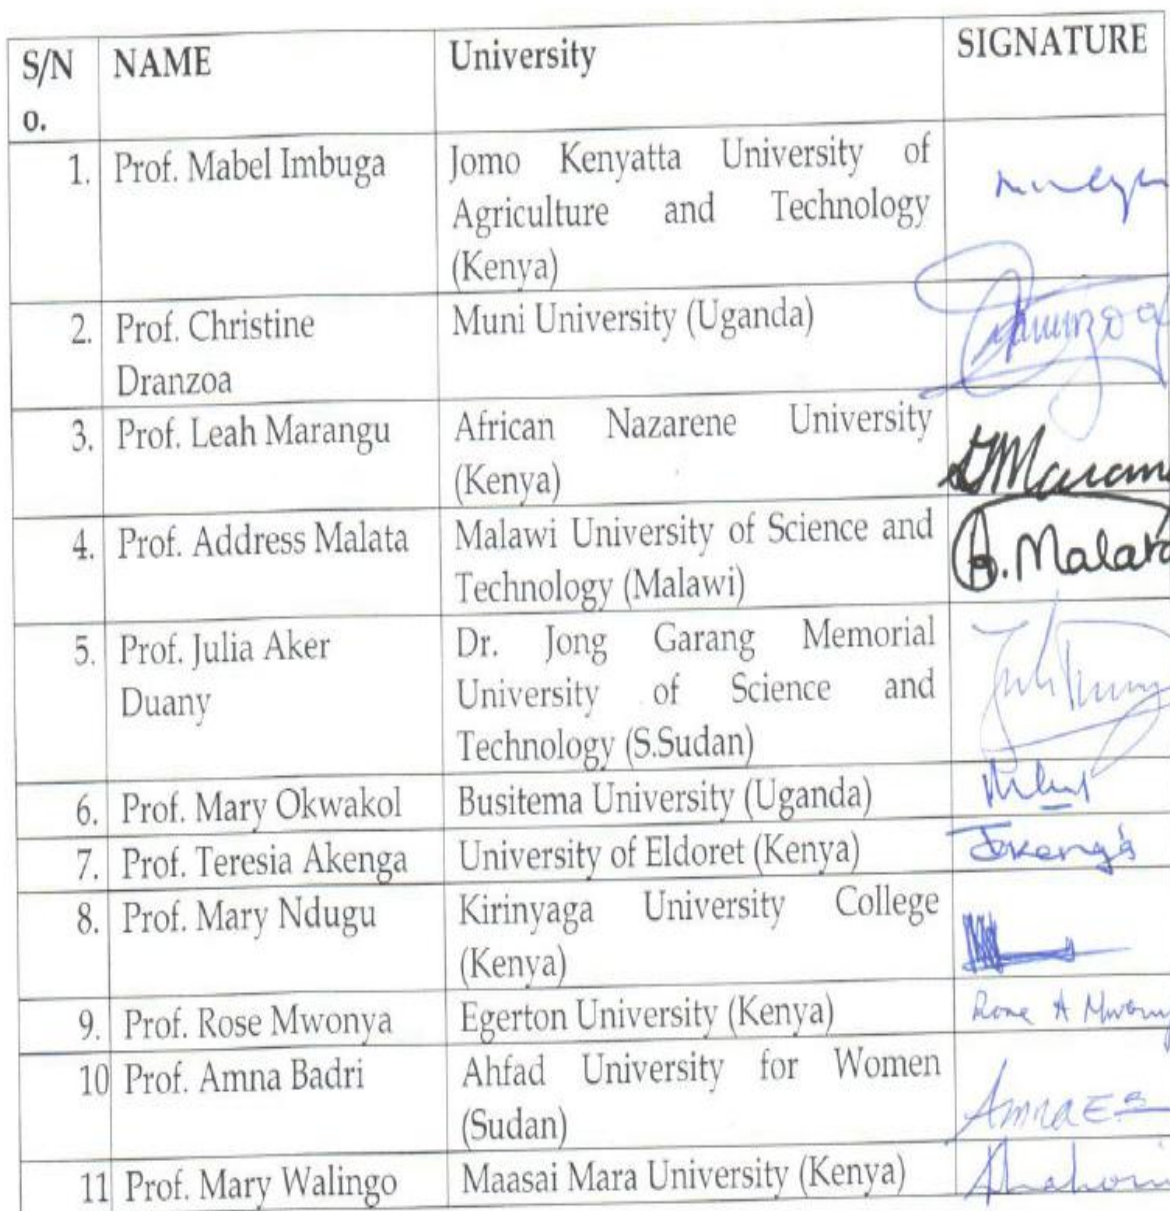 S/N NAME University SIGNATURE
o.
1. Prof. Mabel Imbuga Jomo Kenyatta University of
Agriculture and Technology
(Kenya)
2. Prof. Christine Muni University (Uganda)
Dranzoa
3. Prof. Leah Marangu African Nazarene University
(Kenya)
4. Prof. Address Malata Malawi University of Science and A. Malata
Technology (Malawi)
5. Prof. Julia Aker Dr. Jong Garang Memorial
Duany University of Science and
Technology (S.Sudan)
6. Prof. Mary Okwakol Busitema University (Uganda)
7. Prof. Teresia Akenga University of Eldoret (Kenya)
8. Prof. Mary Ndugu Kirinyaga University College
(Kenya)
9. Prof. Rose Mwonya Egerton University (Kenya) Rose A
10 Prof. Amna Badri Ahfad University for Women
(Sudan)
11 Prof. Mary Walingo Maasai Mara University (Kenya)